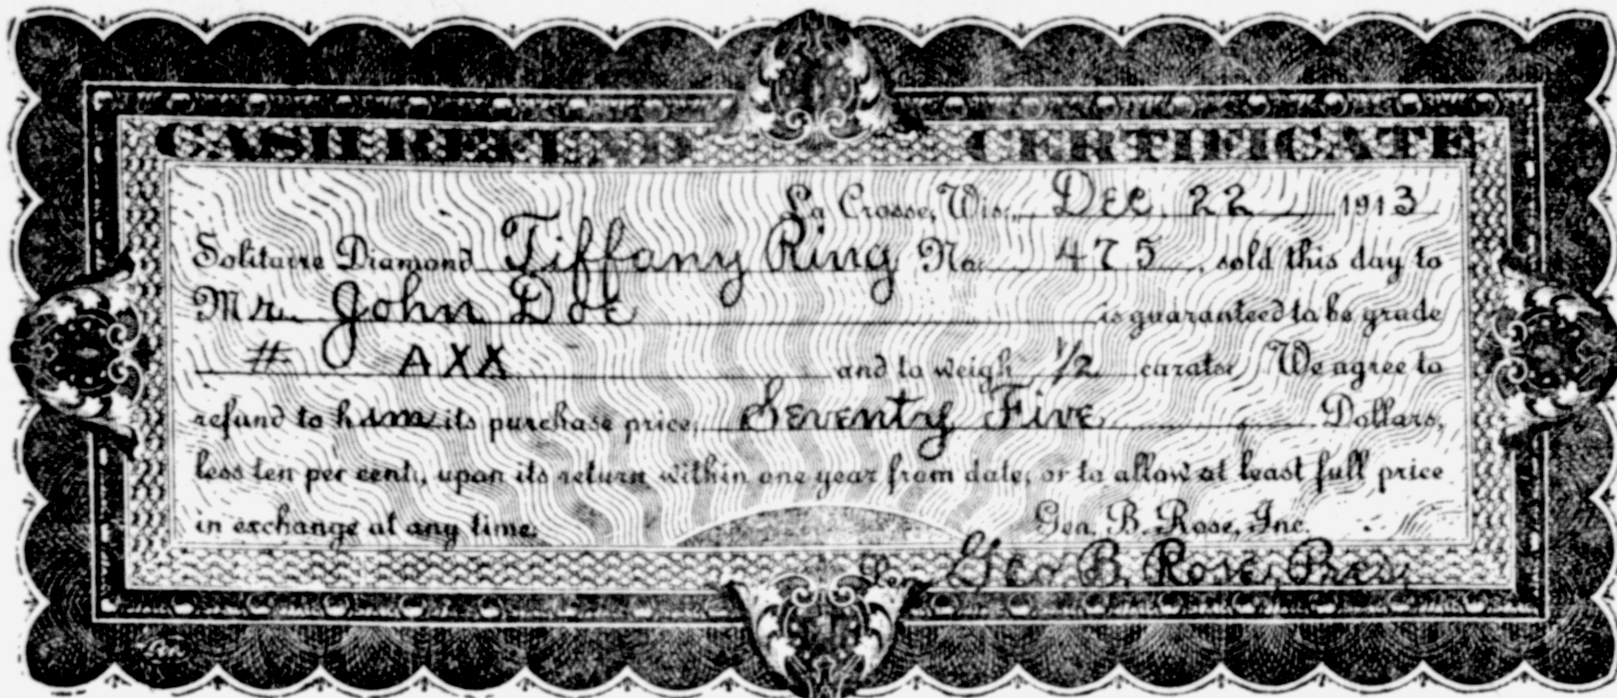 CASH REFUND CERTIFICATE
La Crosse, Wis., Dec. 22 1913
Solitaire Diamond Tiffany Ring No. 475, sold this day to
Mr. John Doe is guaranteed to be grade
# AXX and to weigh 1/2 carats. We agree to
refund to him its purchase price, Seventy Five Dollars,
less ten per cent., upon its return within one year from date, or to allow at least full price
in exchange at any time.
Geo. B. Rose, Inc.
Per Geo B. Rose, Pres,